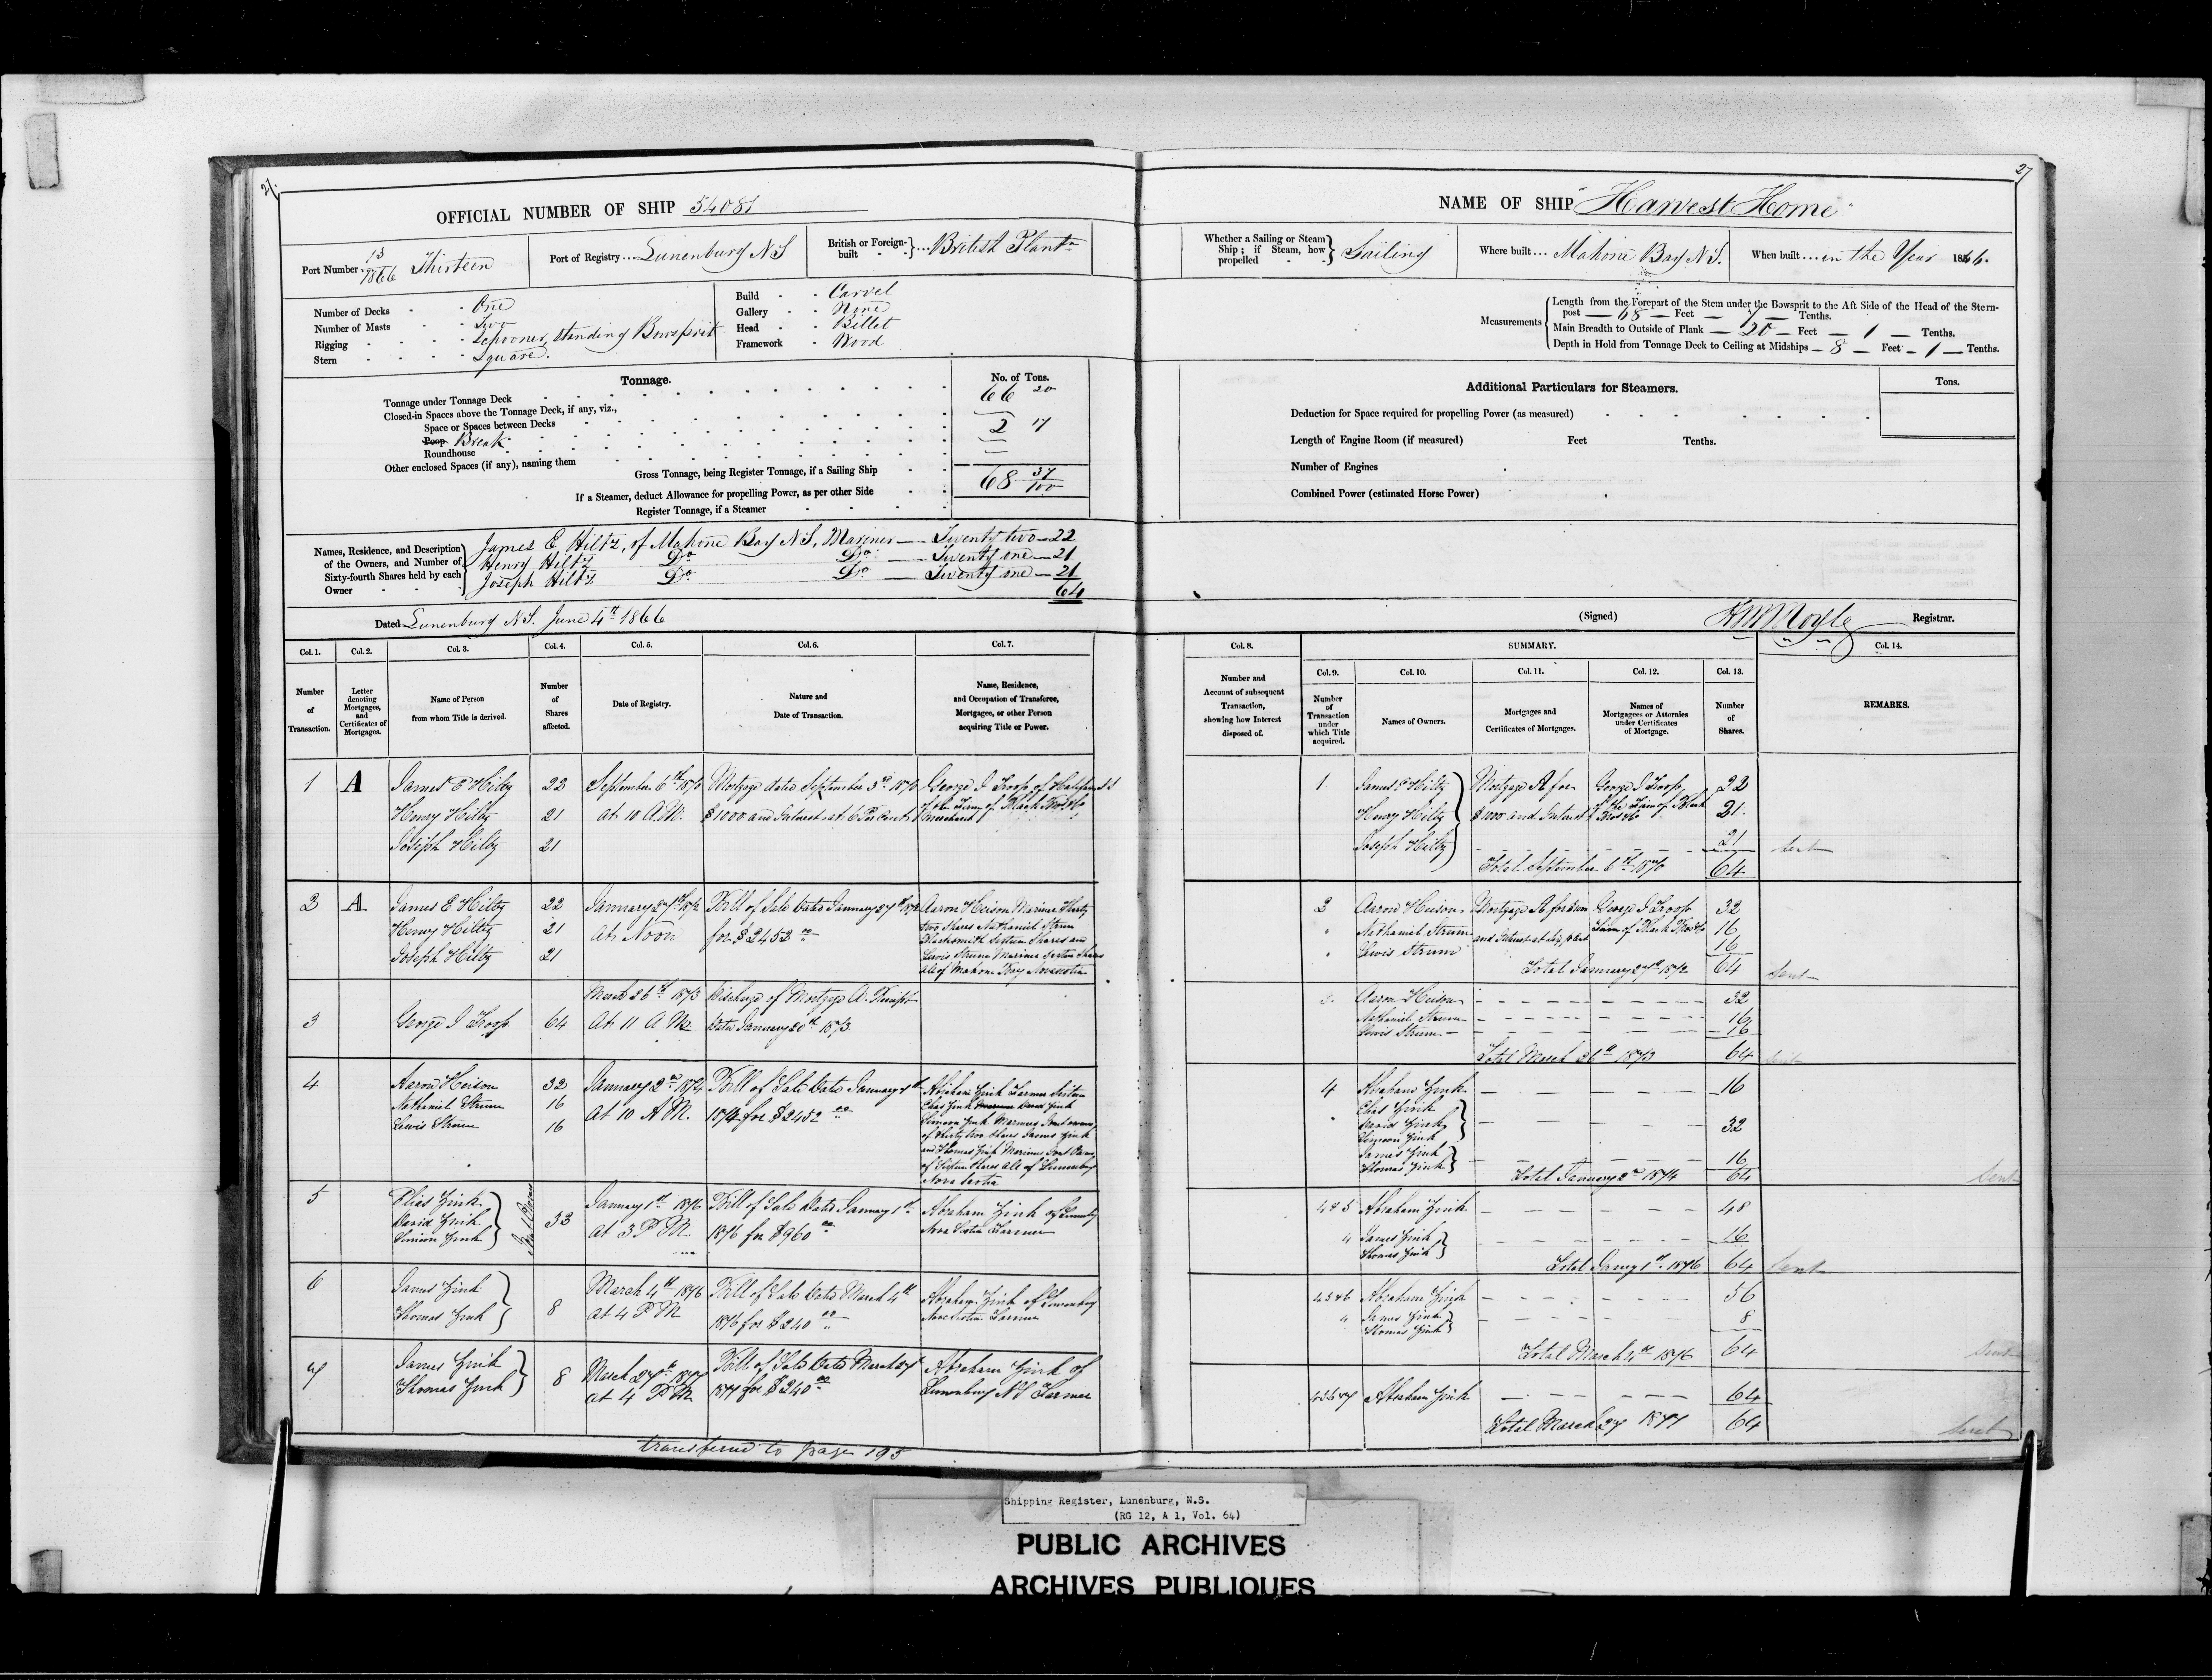 27
27
OFFICIAL NUMBER OF SHIP 54081
NAME OF SHIP "Harvest Home"
Port Number 13/1866 Thirteen
Port of Registry... Lunenburg N S
British or Foreign-built ... British Plantn
Whether a Sailing or Steam Ship; if Steam, how propelled } Sailing
Where built... Mahone Bay N S.
When built... in the Year 1866.
Number of Decks - One
Number of Masts - Two
Rigging - Schooner, standing Bowsprit
Stern - Square.
Build - Carvel
Gallery - None
Head - Billet
Framework - Wood
Measurements
Length from the Forepart of the Stem under the Bowsprit to the Aft Side of the Head of the Stern-
post — 68 — Feet — — Tenths.
Main Breadth to Outside of Plank — 20 — Feet — 1 — Tenths.
Depth in Hold from Tonnage Deck to Ceiling at Midships — 8 — Feet — 1 — Tenths.
Tonnage.
No. of Tons.
Tonnage under Tonnage Deck 66 20
Closed-in Spaces above the Tonnage Deck, if any, viz.,
Space or Spaces between Decks
Poop Break 2 17
Roundhouse
Other enclosed Spaces (if any), naming them
Gross Tonnage, being Register Tonnage, if a Sailing Ship 68 37/100
If a Steamer, deduct Allowance for propelling Power, as per other Side
Register Tonnage, if a Steamer
Additional Particulars for Steamers.
Tons.
Deduction for Space required for propelling Power (as measured)
Length of Engine Room (if measured) Feet Tenths.
Number of Engines
Combined Power (estimated Horse Power)
Names, Residence, and Description of the Owners, and Number of Sixty-fourth Shares held by each Owner
James E Hiltz, of Mahone Bay N S, Mariner — Twenty two — 22
Henry Hiltz Do Do — Twenty one — 21
Joseph Hiltz Do Do — Twenty one — 21
64
Dated Lunenburg N S. June 4th 1866
(Signed) Registrar.
Col. 1. Number of Transaction.
Col. 2. Letter denoting Mortgages, and Certificates of Mortgages.
Col. 3. Name of Person from whom Title is derived.
Col. 4. Number of Shares affected.
Col. 5. Date of Registry.
Col. 6. Nature and Date of Transaction.
Col. 7. Name, Residence, and Occupation of Transferee, Mortgagee, or other Person acquiring Title or Power.
Col. 8. Number and Account of subsequent Transaction, showing how Interest disposed of.
SUMMARY.
Col. 9. Number of Transaction under which Title acquired.
Col. 10. Names of Owners.
Col. 11. Mortgages and Certificates of Mortgages.
Col. 12. Names of Mortgagees or Attornies under Certificates of Mortgage.
Col. 13. Number of Shares.
Col. 14. REMARKS.
1 A James E Hiltz 22 September 6th 1870 Mortgage dated September 3rd 1870 George J Troop of Halifax N S
Henry Hiltz 21 at 10 A.M. $1000 and Interest at 6 Per Cent of the Firm of Black Bros & Co
Joseph Hiltz 21 Merchant
1 James E Hiltz Mortgage A for George J Troop 22
Henry Hiltz $1000 and Interest of the Firm of Black Bros & Co 21
Joseph Hiltz 21
Total September 6th 1870 64 Sent
2 A James E Hiltz 22 January 27th 1872 Bill of Sale Dated January 27th 1872 Aaron Heison Mariner Thirty
Henry Hiltz 21 At Noon for $2452 00 two Shares Nathaniel Strum
Joseph Hiltz 21 Blacksmith Sixteen Shares and
Lewis Strum Mariner Sixteen Shares
all of Mahone Bay Nova Scotia
2 Aaron Heison Mortgage A for George J Troop 32
" Nathaniel Strum and Interest Firm of Black Bros & Co 16
" Lewis Strum 16
Total January 27th 1872 64 Sent
3 George J Troop 64 March 26th 1873 At 11 A M. Discharge of Mortgage A. Receipt
Dated January 20th 1873
3. Aaron Heison 32
Nathaniel Strum 16
Lewis Strum 16
Total March 26th 1873 64 Sent
4 Aaron Heison 32 January 2nd 1874 Bill of Sale Dated January
Nathaniel Strum 16 At 10 A M. 1874 for $2452 00
Lewis Strum 16
Abraham Zink Farmer Sixteen
Elias Zink David Zink
Simeon Zink Mariners Joint owners
of Thirty two Shares James Zink
and Thomas Zink Mariners Joint Owners
of Sixteen Shares all of Lunenburg
Nova Scotia
4 Abraham Zink 16
Elias Zink
David Zink 32
Simeon Zink
James Zink
Thomas Zink 16
Total January 2nd 1874 64 Sent
5 Elias Zink
David Zink
Simeon Zink
Joint Owners
32 January 1st 1876 Bill of Sale Dated January 1st Abraham Zink of Lunenburg
at 3 P M. 1876 for $960 00 Nova Scotia Farmer
4 & 5 Abraham Zink 48
4 James Zink
Thomas Zink 16
Total Jany 1st 1876 64 Sent
6 James Zink
Thomas Zink 8 March 4th 1876 Bill of Sale Dated March 4th Abraham Zink of Lunenburg
at 4 P M 1876 for $240 00 Nova Scotia Farmer
4 5 & 6 Abraham Zink 56
4 James Zink
Thomas Zink 8
Total March 4th 1876 64 Sent
7 James Zink
Thomas Zink 8 March 27th 1877 Bill of Sale Dated March 27 Abraham Zink of
at 4 P M 1877 for $240 00 Lunenburg N S Farmer
4 5 6 & 7 Abraham Zink 64
Total March 27 1877 64 Sent
transferred to page 195
Shipping Register, Lunenburg, N.S.
(RG 12, A 1, Vol. 64)
PUBLIC ARCHIVES
ARCHIVES PUBLIQUES